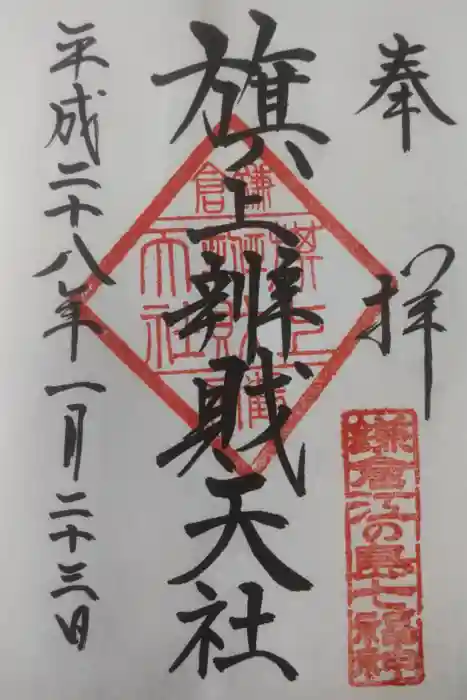 奉拝
鎌倉江の島七福神
旗上辨財天社
鎌倉
旗上
辨財
天社
平成二十八年一月二十三日